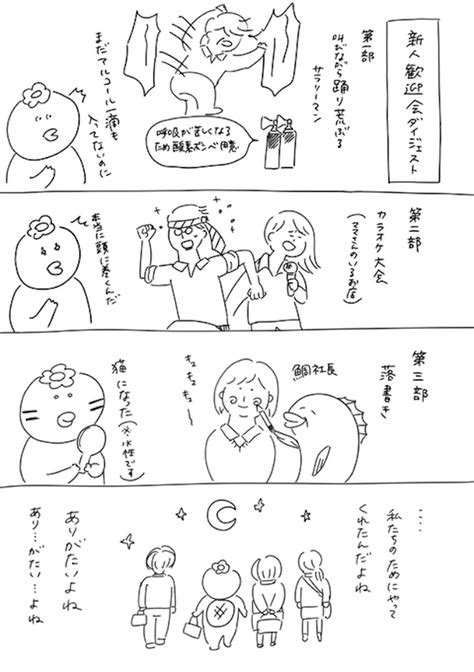 新人歓迎会ダイジェスト
第一部
叫びながら踊り荒ぶる
サラリーマン
呼吸が苦しくなる
ため酸素ボンベ用意
まだアルコール一滴も
入ってないのに
第二部
カラオケ大会
(ママさんのいるお店)
本当に頭に巻くんだ
第三部
落書き
鯛社長
キュキュキュ〜
猫になった(※水性です)
....
私たちのためにやって
くれたんだよね
ありがたいよね
あり…がたい…よね